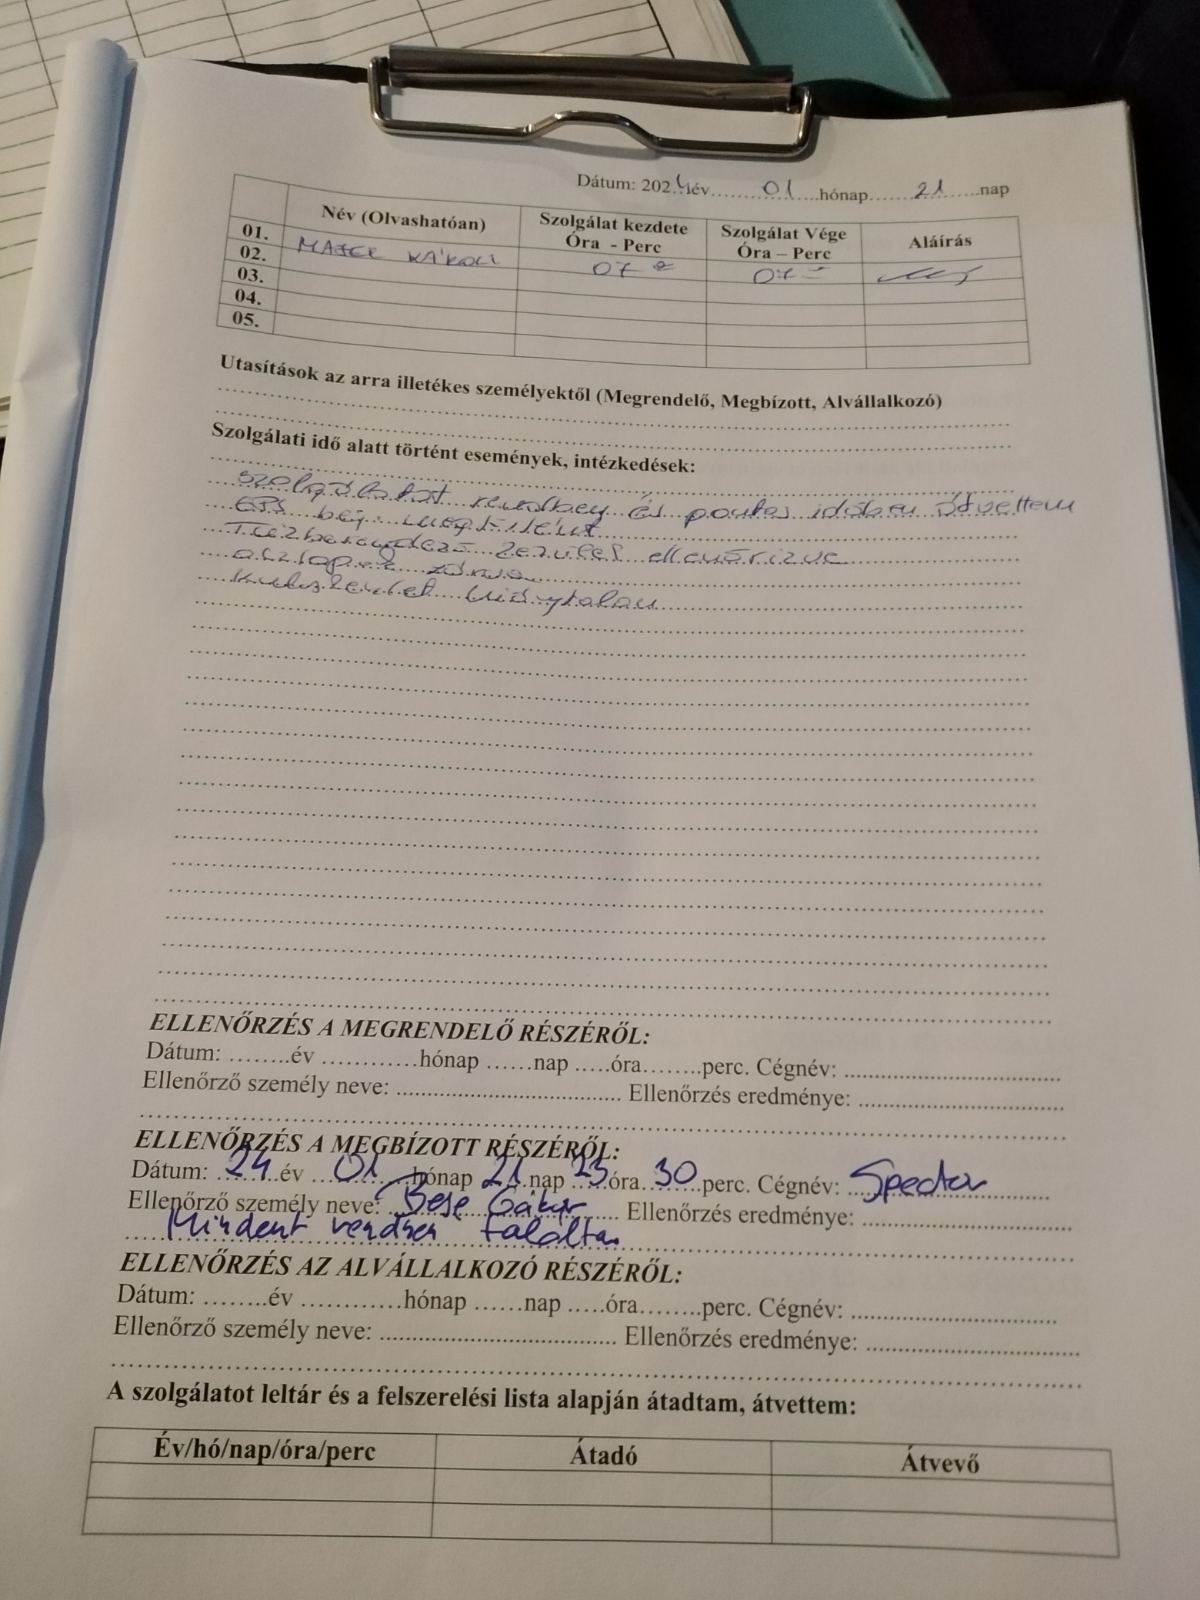 Dátum: 2024 év 01 hónap 21 nap
Név (Olvashatóan) Szolgálat kezdete Óra - Perc Szolgálat Vége Óra – Perc Aláírás
01. MAJER KÁROLY 07 07
02.
03.
04.
05.
Utasítások az arra illetékes személyektől (Megrendelő, Megbízott, Alvállalkozó)
Szolgálati idő alatt történt események, intézkedések:
Szolgálatot rendben és pontos időben átvettem
megtörtént
ellenőrizve
zárva
hiánytalan
ELLENŐRZÉS A MEGRENDELŐ RÉSZÉRŐL:
Dátum: ........év ............hónap ......nap .....óra........perc. Cégnév: ...............................
Ellenőrző személy neve: ................................. Ellenőrzés eredménye: ..............................
ELLENŐRZÉS A MEGBÍZOTT RÉSZÉRŐL:
Dátum: 24 év 01 hónap 21 nap 23 óra 30 perc. Cégnév: Spector
Ellenőrző személy neve: Bese Gábor Ellenőrzés eredménye: ..............................
Mindent rendben találtam
ELLENŐRZÉS AZ ALVÁLLALKOZÓ RÉSZÉRŐL:
Dátum: ........év ............hónap ......nap .....óra........perc. Cégnév: ...............................
Ellenőrző személy neve: ................................. Ellenőrzés eredménye: ..............................
A szolgálatot leltár és a felszerelési lista alapján átadtam, átvettem:
Év/hó/nap/óra/perc Átadó Átvevő